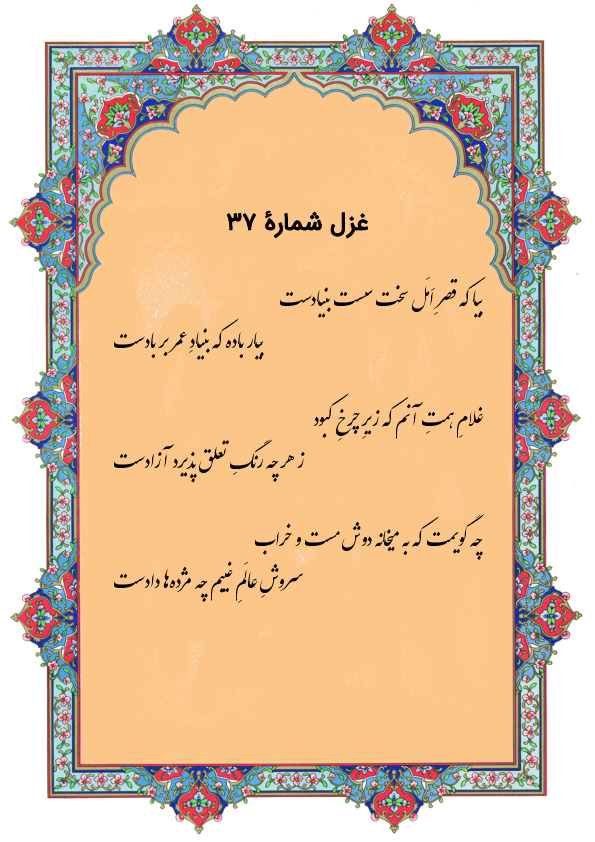 غزل شمارهٔ ۳۷
بیا که قصرِ اَمَل سخت سست بنیادست
بیار باده که بنیادِ عمر بر بادست
غلامِ همتِ آنم که زیرِ چرخِ کبود
ز هر چه رنگِ تعلق پذیرد آزادست
چه گویمت که به میخانه دوش مست و خراب
سروشِ عالَمِ غیبم چه مژده‌ها دادست